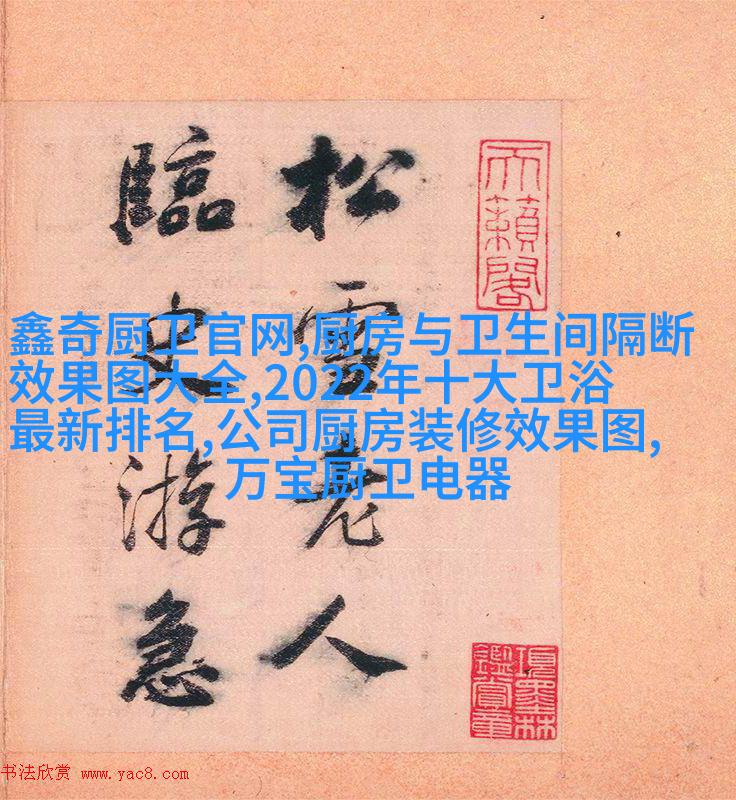 松雪老人
臨史游急
天籟閣
鑫奇厨卫官网,厨房与卫生间隔断
效果图大全,2022年十大卫浴
最新排名,公司厨房装修效果图,
万宝厨卫电器
項墨林
鑑賞章
书法欣赏 www.yac8.com